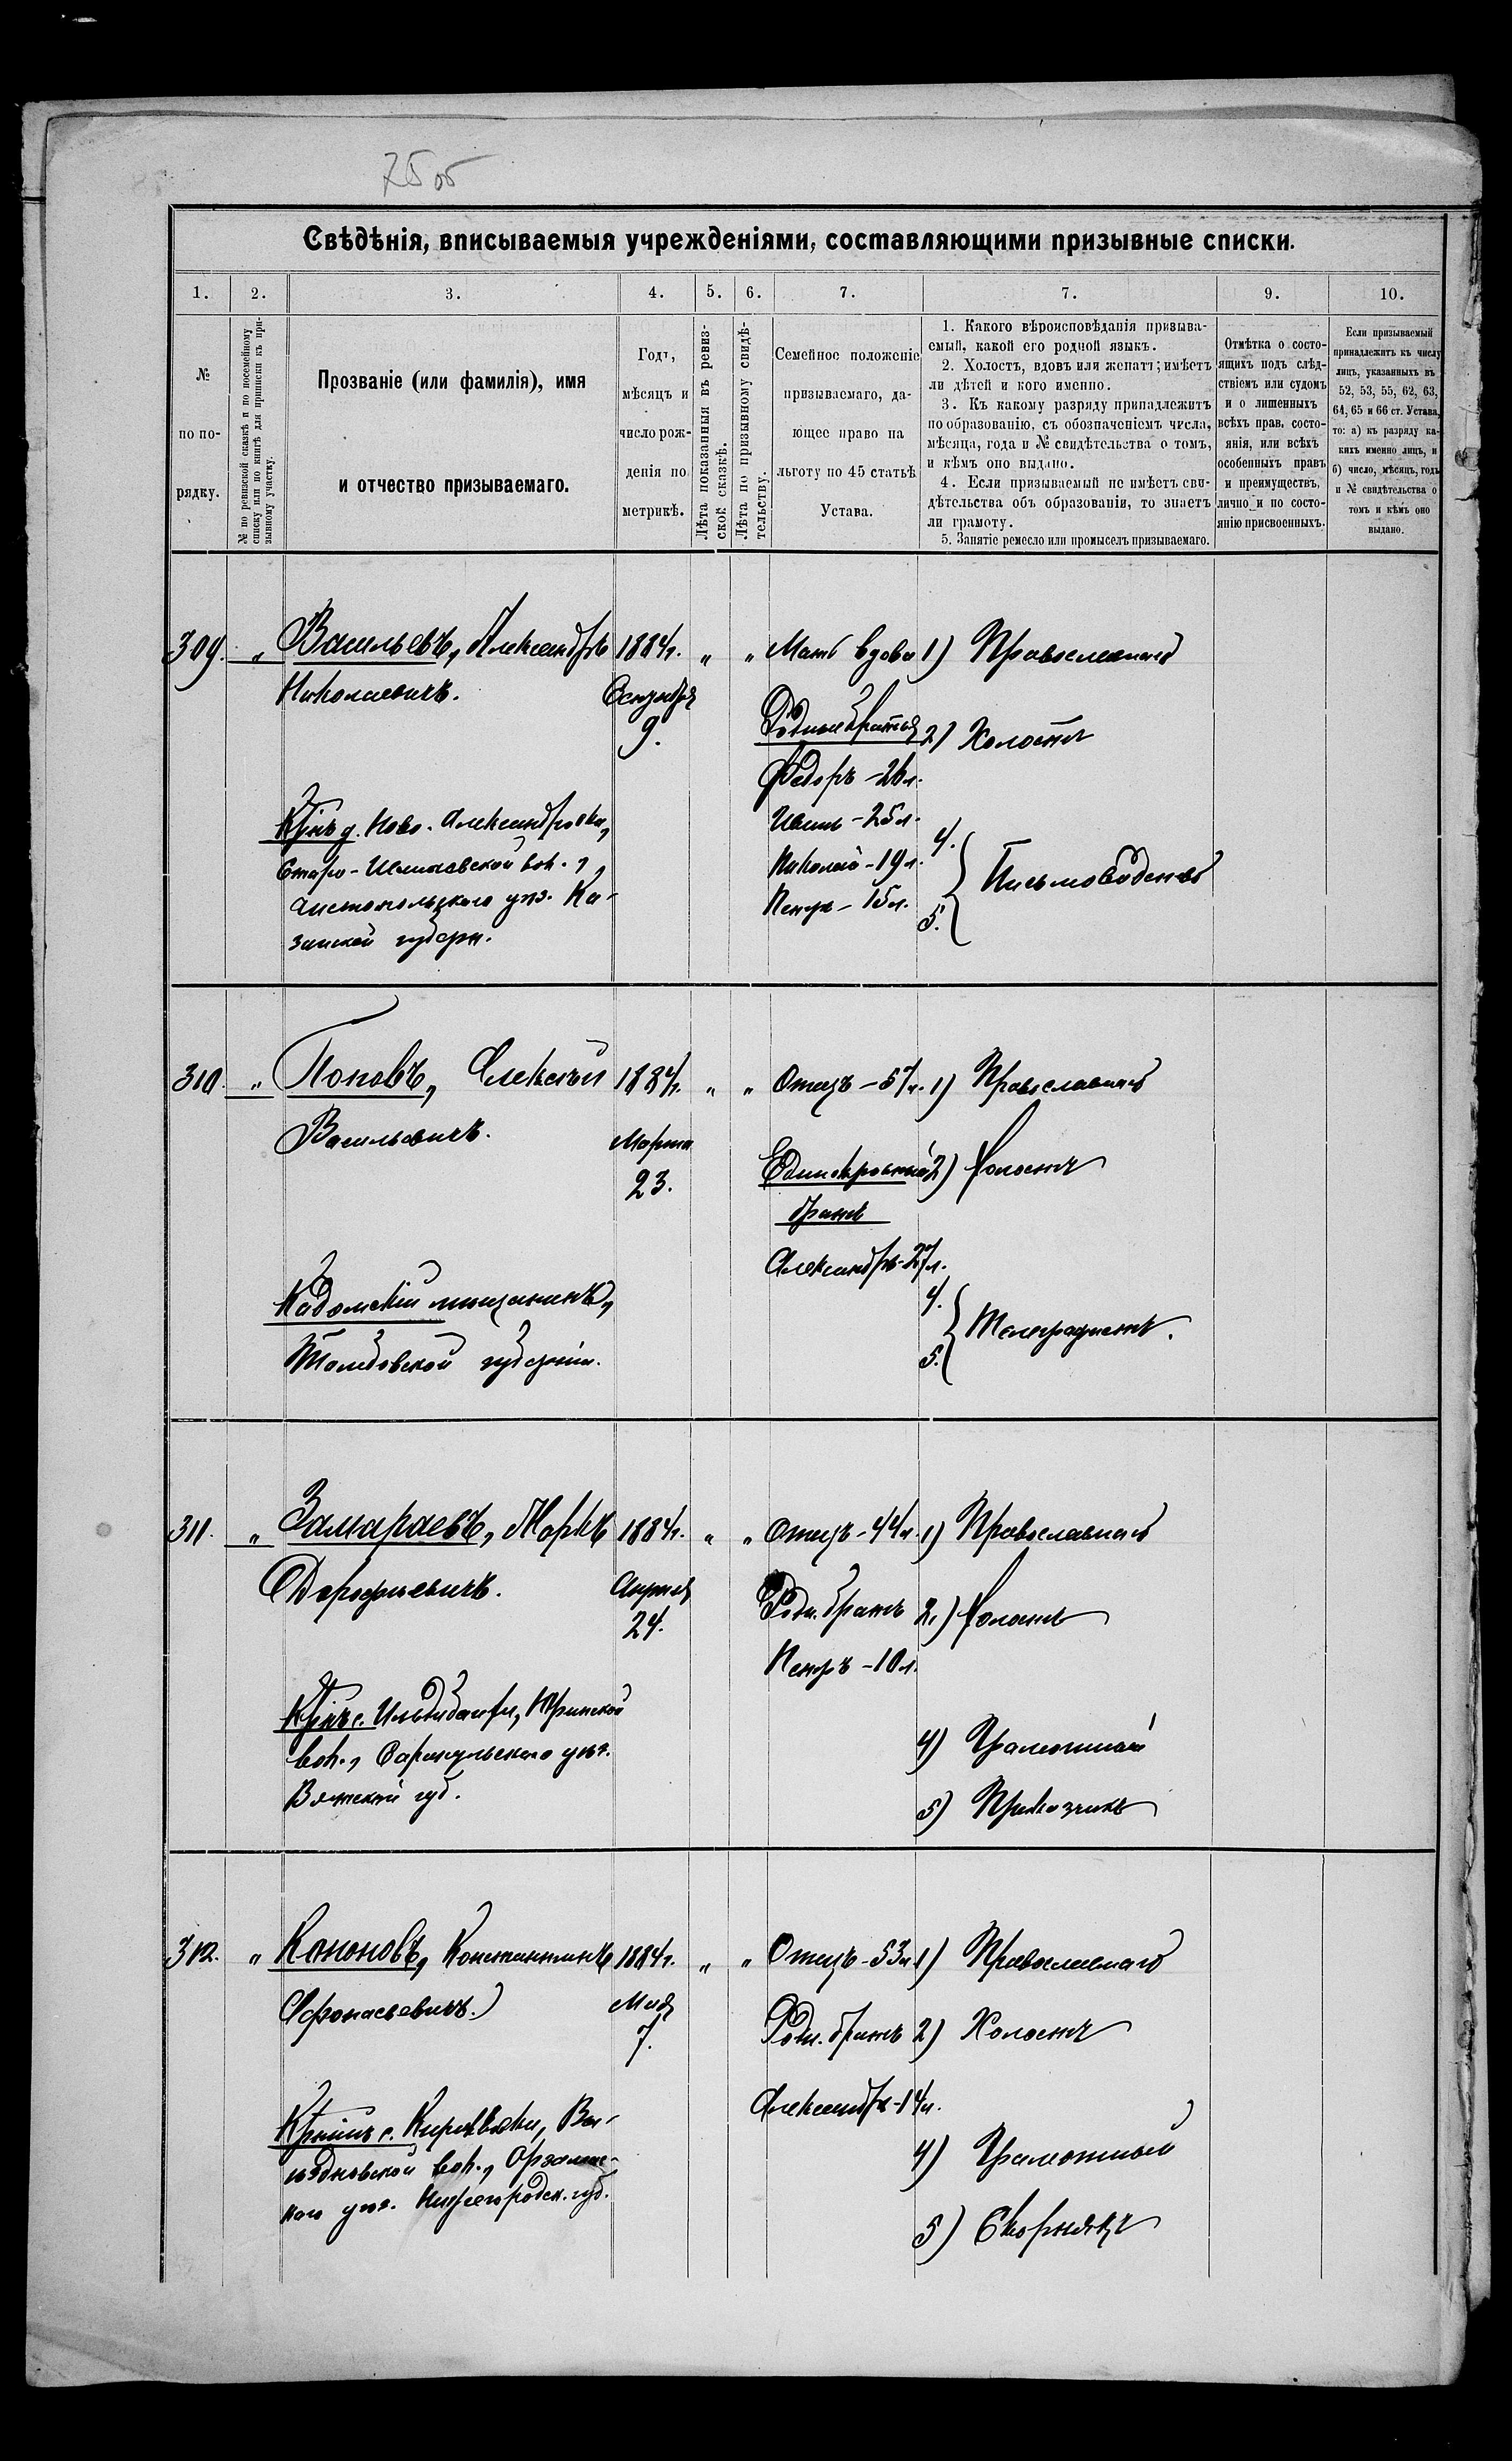 75 об
Свѣдѣнія, вписываемыя учрежденіями, составляющими призывные списки.
1. 2. 3. 4. 5. 6. 7. 7. 9. 10.
№ по порядку.
№ по ревизской сказкѣ и по посемейному
списку или по книгѣ для приписки къ при-
зывному участку.
Прозваніе (или фамилія), имя
и отчество призываемаго.
Годъ,
мѣсяцъ и
число рож-
денія по
метрикѣ.
Лѣта показанныя въ ревиз-
ской сказкѣ.
Лѣта по призывному свидѣ-
тельству.
Семейное положеніе
призываемаго, да-
ющее право на
льготу по 45 статьѣ
Устава.
1. Какого вѣроисповѣданія призыва-
емый, какой его родной языкъ.
2. Холостъ, вдовъ или женатъ; имѣетъ
ли дѣтей и кого именно.
3. Къ какому разряду принадлежитъ
по образованію, съ обозначеніемъ числа,
мѣсяца, года и № свидѣтельства о томъ,
и кѣмъ оно выдано.
4. Если призываемый не имѣетъ сви-
дѣтельства объ образованіи, то знаетъ
ли грамоту.
5. Занятіе ремесло или промыселъ призываемаго.
Отмѣтка о состо-
ящихъ подъ слѣд-
ствіемъ или судомъ
и о лишенныхъ
всѣхъ прав, состо-
янія, или всѣхъ
особенныхъ правъ
и преимуществъ,
лично и по состо-
янію присвоенныхъ.
Если призываемый
принадлежитъ къ числу
лицъ, указанныхъ въ
52, 53, 55, 62, 63,
64, 65 и 66 ст. Устава,
то: а) къ разряду ка-
кихъ именно лицъ, и
б) число, мѣсяцъ, годъ
и № свидѣтельства о
томъ и кѣмъ оно
выдано.
309. " Васильевъ, Александръ 1884г. " " Мать вдова 1) Православный
Николаевичъ. Сентября
9.
Родные братья 2) Холостъ
Федоръ - 28л.
Иванъ - 25л.
Николай - 19л.
Петръ - 15л.
4.
5. Письмоводитель
Кр-нъ д. Ново-Александровки,
Старо-Иванаевской вол.,
Чистопольскаго уѣз. Ка-
занской губерн.
310. " Поповъ, Алексѣй 1884г. " " Отецъ - 57л. 1) Православный
Васильевичъ. Марта
23.
Единокровный 2) Холостъ
братъ
Александръ - 27л.
4.
5. Телеграфистъ.
Кадомскій мѣщанинъ,
Тамбовской губерніи.
311. " Замараевъ, Маркъ 1884г. " " Отецъ - 44л. 1) Православный
Дорофѣевичъ. Апрѣля
24.
Родн. братъ 2.) Холостъ
Петръ - 10л.
Кр-нъ с. Ильдибаихи, Юринской
вол., Сарапульскаго уѣз.
Вятской губ.
4) Грамотный
5) Приказчикъ
312. " Кононовъ, Константинъ 1884г. " " Отецъ - 53л. 1) Православный
Афонасьевичъ. Мая
7.
Родн. братъ 2) Холостъ
Александръ - 14л.
Кр-нинъ с. Кирѣевки, Ва-
ной вол., Арзамас-
каго уѣз. Нижегородск. губ.
4) Грамотный
5) Скорнякъ